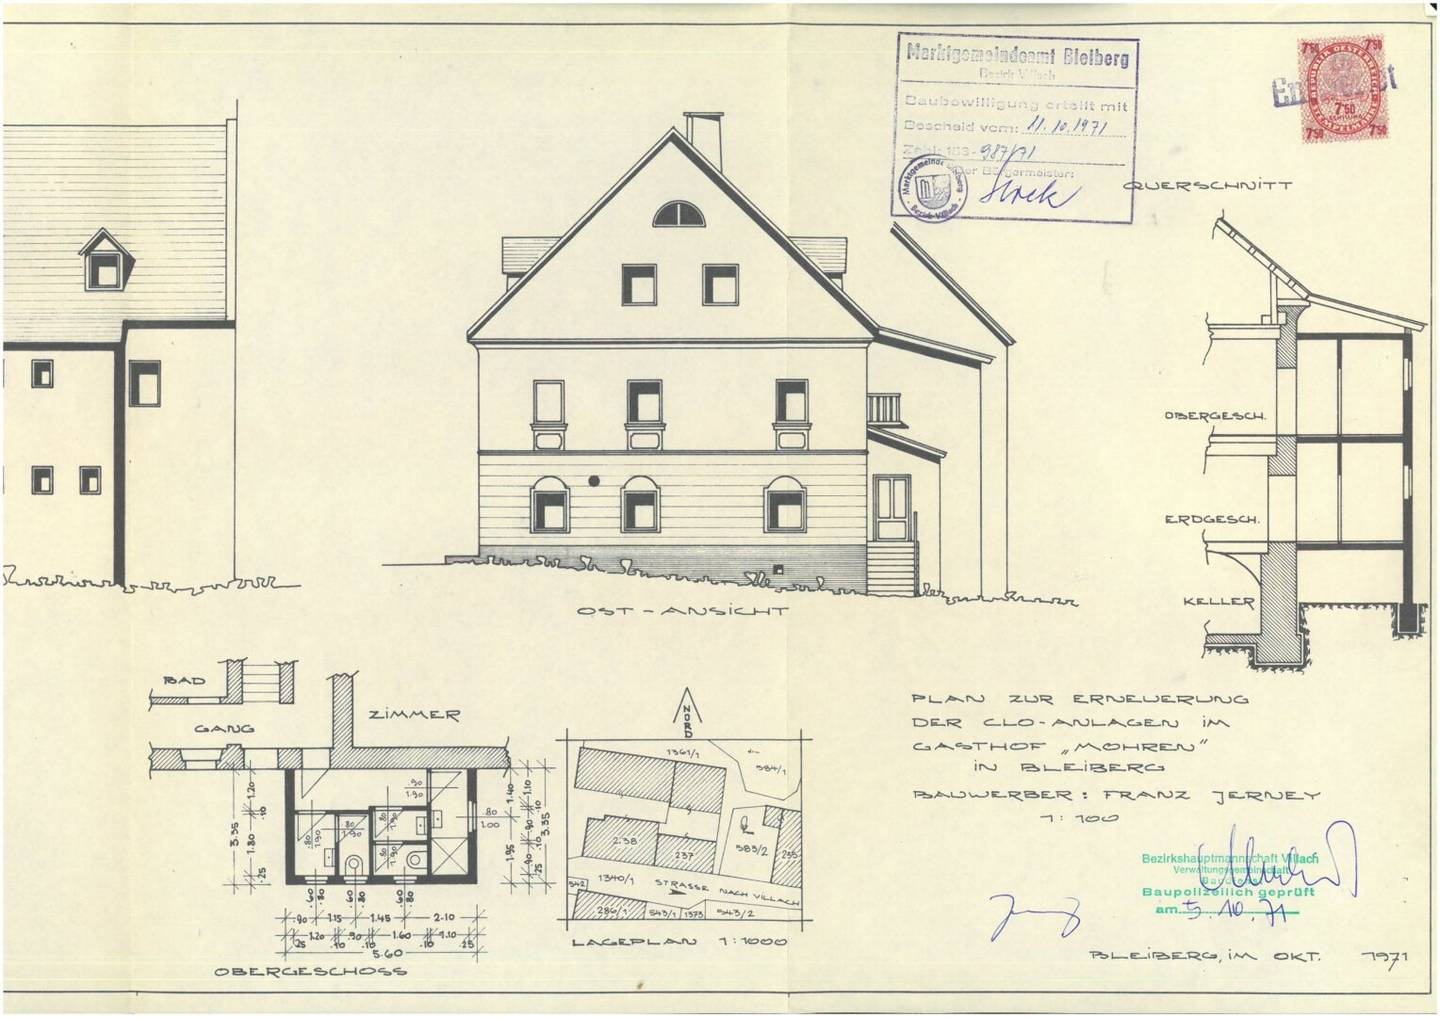 Marktgemeindeamt Bleiberg
Bezirk Villach
Baubewilligung erteilt mit
Bescheid vom: 11.10.1971
Zahl: 153-987/71
Der Bürgermeister:
Marktgemeinde Bleiberg
Bezirk Villach
REPUBLIK ÖSTERREICH
7'50
7'50
7'50
SCHILLING
STEMPELMARKE
7'50
7'50
QUERSCHNITT
OBERGESCH.
ERDGESCH.
KELLER
OST-ANSICHT
BAD
GANG
ZIMMER
.90
1.90
.80
1.00
.80
1.90
.80
1.90
.80
1.90
.80
1.90
3.35
1.20
.10
1.80
.25
1.40
1.95
1.10
.10
.90
.10
.90
.25
3.35
.60
.80
.60
.80
.60
.80
.90
1.15
1.45
2.10
.25
1.20
.10
.90
.10
1.60
.10
1.10
.25
5.60
OBERGESCHOSS
NORD
1361/1
584/1
238
237
583/2
235
1340/1
STRASSE NACH VILLACH
542
286/1
543/1
1373
543/2
LAGEPLAN 1:1000
PLAN ZUR ERNEUERUNG
DER CLO-ANLAGEN IM
GASTHOF „MOHREN"
IN BLEIBERG
BAUWERBER: FRANZ JERNEY
1:100
Bezirkshauptmannschaft Villach
Verwaltungsgemeinschaft
Baudienst
Baupolizeilich geprüft
am 5.10.71
BLEIBERG, IM OKT. 1971